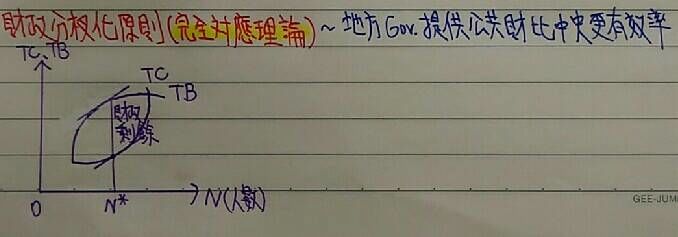 財政分权化原則(完全対應理論)~地方Gov.提供公共財比中央更有效率
TC、TB
TC
TB
財政
剩餘
0
N*
N(人數)
GEE-JUM